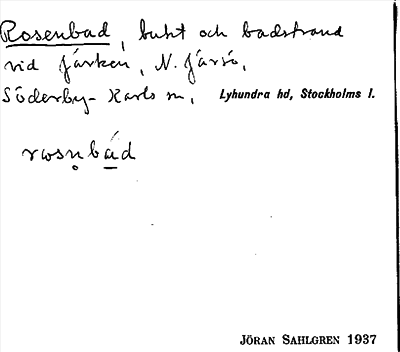 Rosenbad, bukt och badstrand
vid Järken, N. Järsö,
Söderby-Karls sn, Lyhundra hd, Stockholms l.
rosn̥bá̱d
JÖRAN SAHLGREN 1937